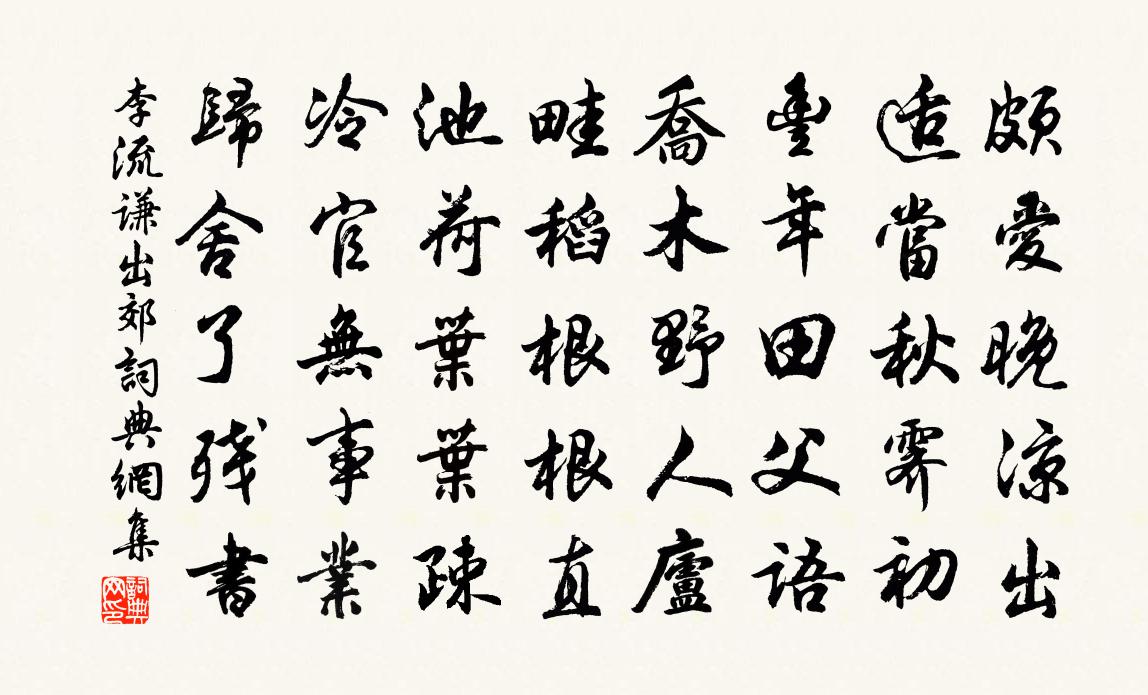 頗愛晚凉出
适當秋霽初
豊年田父語
喬木野人廬
畦稻根根直
池荷葉葉疎
冷官無事業
歸舍了残書
李流谦出郊詞典網集
詞典網印